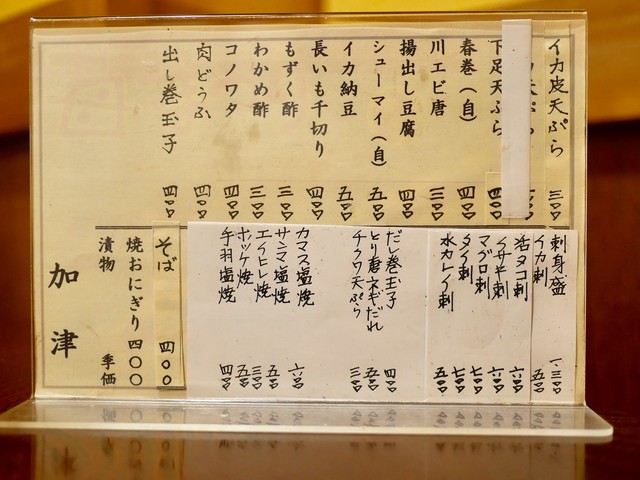 イカ皮天ぷら 三〇〇
下足天ぷら 四〇〇
春巻(自) 四〇〇
川エビ唐 三〇〇
揚出し豆腐 四〇〇
シューマイ(自) 五〇〇
イカ納豆 五〇〇
長いも千切り 四〇〇
もずく酢 三〇〇
わかめ酢 三〇〇
コノワタ 四〇〇
肉どうふ 四〇〇
出し巻玉子 四〇〇
刺身盛 一、三〇〇
イカ刺 五〇〇
活タコ刺 六〇〇
イサキ刺 六〇〇
マグロ刺 七〇〇
タイ刺 七〇〇
水カレイ刺 五〇〇
だし巻玉子 四〇〇
とり唐ネギだれ 五〇〇
チクワ天ぷら 三〇〇
カマス塩焼 六〇〇
サンマ塩焼 五〇〇
エイヒレ焼 三〇〇
ホッケ焼 五〇〇
手羽塩焼 四〇〇
そば 四〇〇
焼おにぎり 四〇〇
漬物 季価
加津